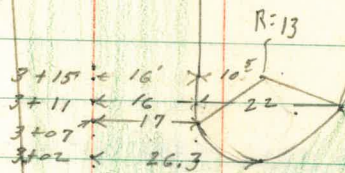 R=13
3+15 16' 10⁵
3+11 16 22
3+07 17
3+02 26.3